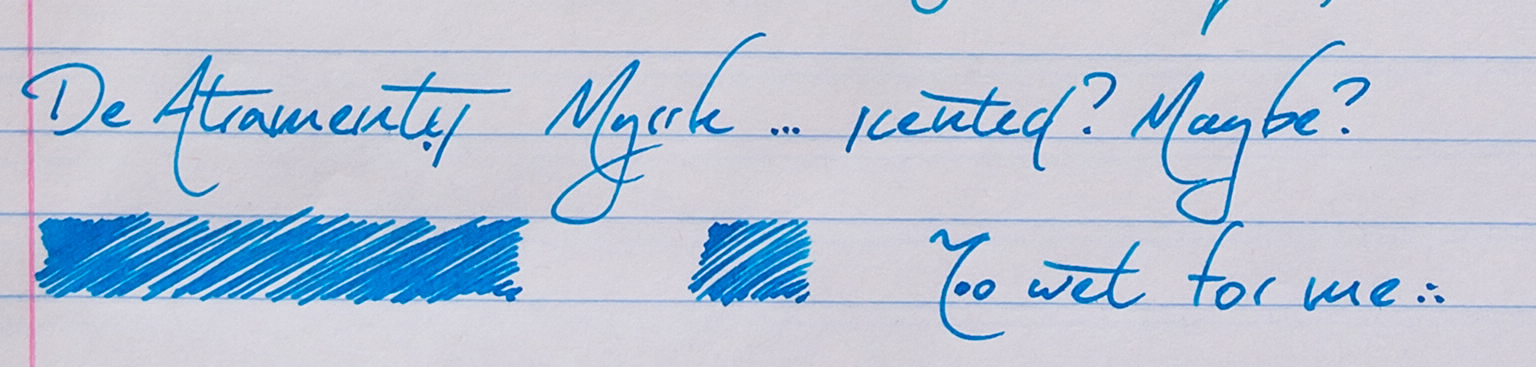 De Atramentis Myrrh ... scented? Maybe?
Too wet for me...